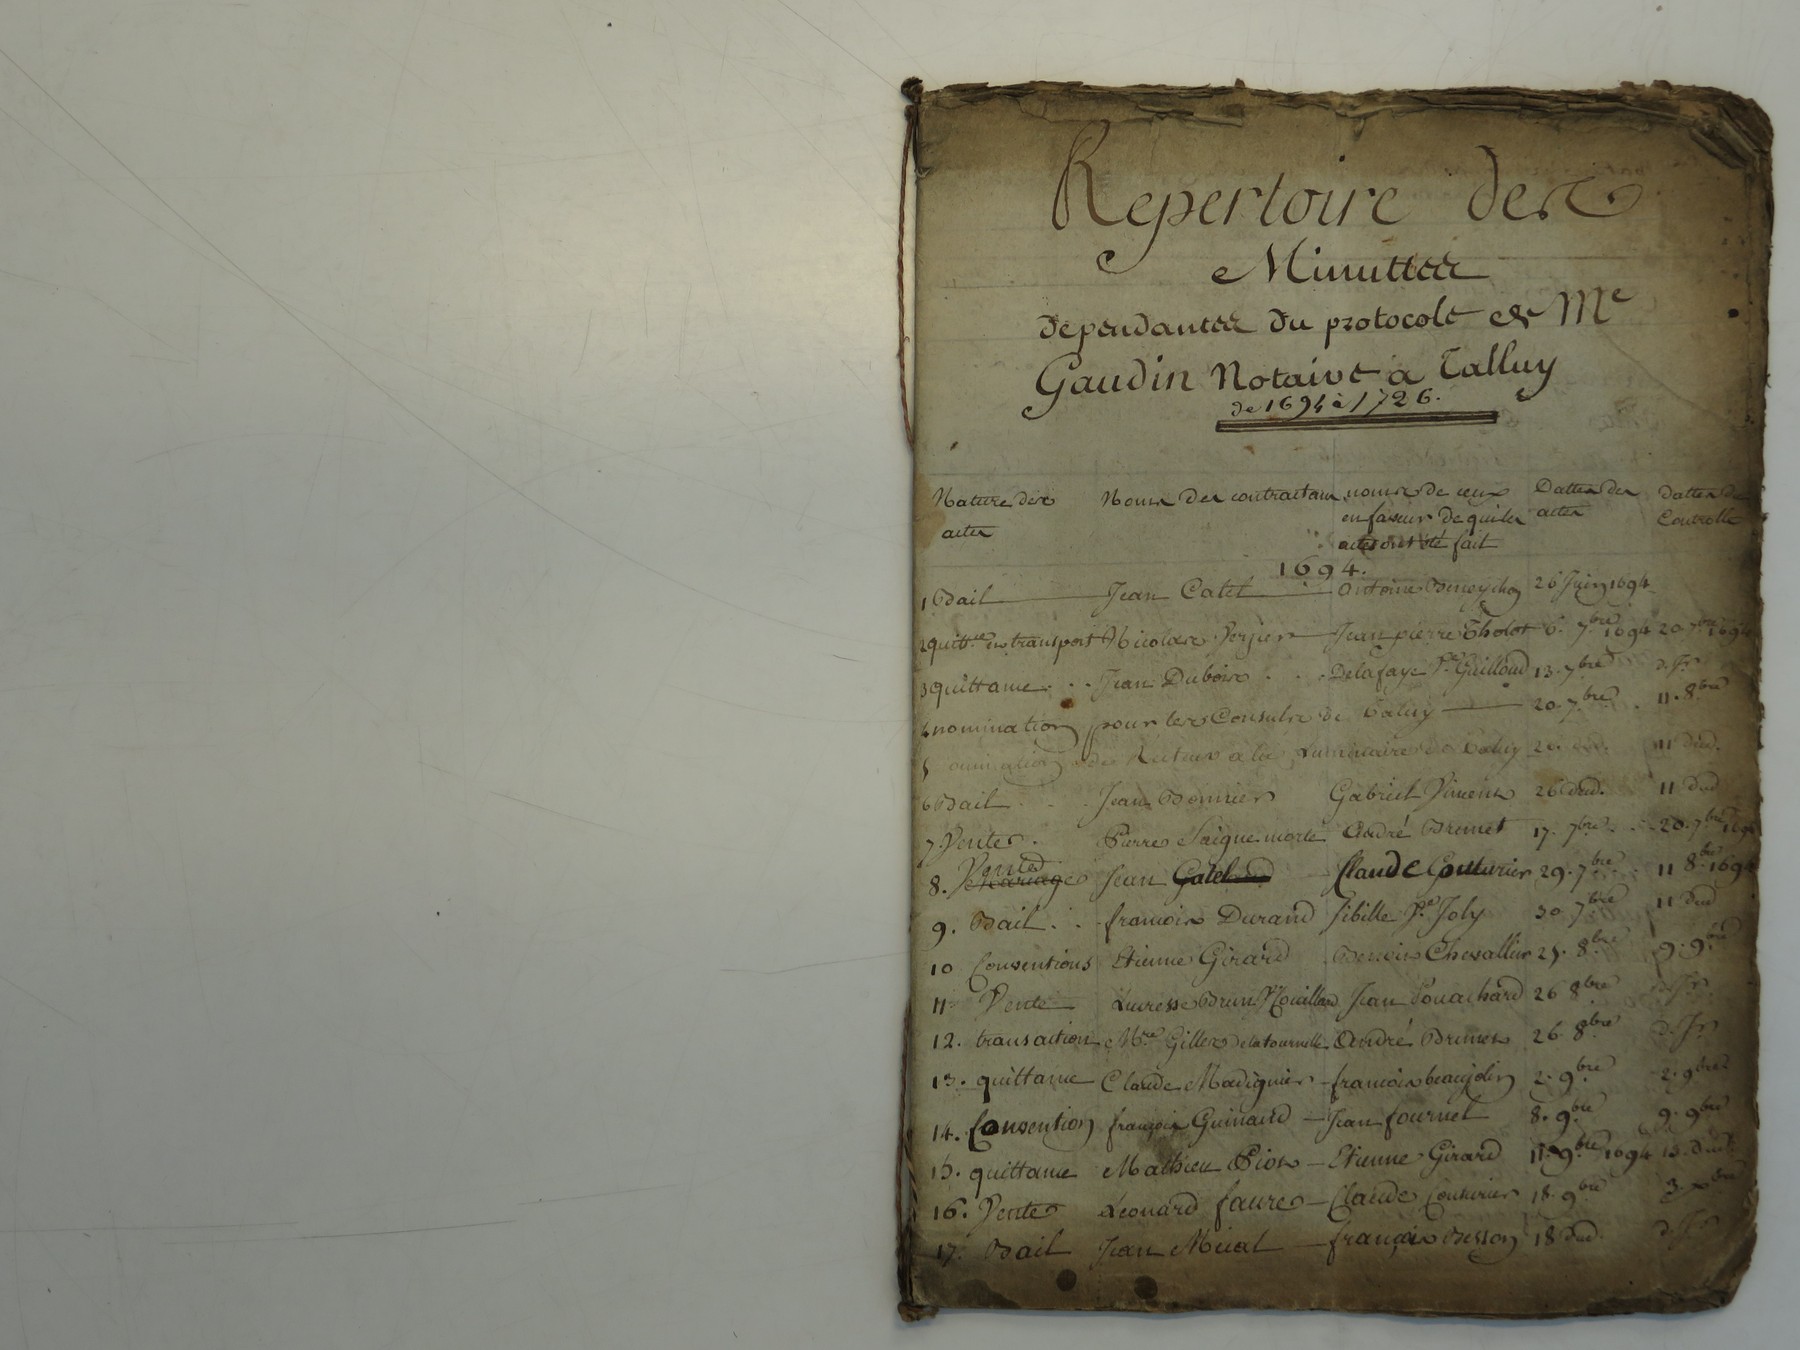 Repertoire des
Minuttes
dependantes du protocole de Me
Gaudin Notaire à Talluy
de 1694 à 1726.
Nature des actes Noms des contractans noms de ceux en faveur de qui les actes ont été fait Dattes des actes dattes du Controlle
1694.
1 Bail Jean Catel Antoine 26 Juin 1694
2 quittce en transport Nicolas Verjier Jean pierre Tholot 6. 7bre 1694 20 7bre 1694
3 quittance Jean Dubois Delafaye Guilloud 13. 7bre d. Jr
4 nomination pour les Consuls de Taluy 20. 7bre 11. 8bre
5 nomination des Recteurs a la Luminaire de Taluy 20. dud. 11 dud.
6 Bail Jean Bonnier Gabriel Vincent 26 dud. 11 dud
7. Vente Pierre Saignemorte André Brunet 17. 7bre 20. 7bre 1694
8. Vente Mariage Jean Gatel Claude Couturier 29. 7bre 11 8bre 1694
9. Bail francois Durand Sibille Joly 30 7bre 11 dud
10 Conventions Etienne Girard Benoit Chevallier 25. 8bre 9. 9bre
11 Vente Lucresse Brun Jean Pouachard 26 8bre d. Jr
12. transaction Mre Gilles delatournelle André Brunet 26. 8bre d. Jr
13. quittance Claude Madignier francois beaujolin 2. 9bre 2. 9bre
14. Convention françois Guinand Jean fournel 8. 9bre 9. 9bre
15. quittance Mathieu Piot Etienne Girard 11. 9bre 1694 13. dud.
16. Vente Leonard faure Claude Couturier 18. 9bre 3. xbre
17. Bail Jean françois Besson 18 dud. d. Jr